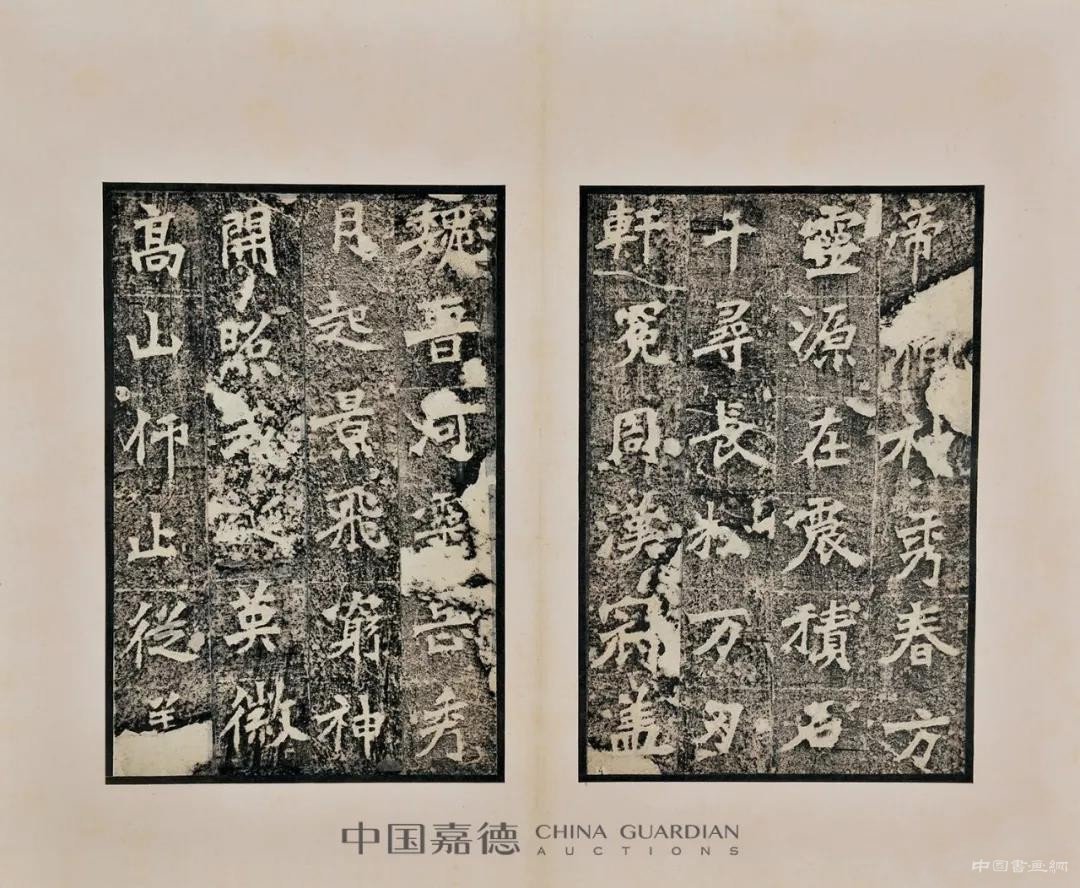 帝胤神秀春方
靈源在震積石
千尋長松万刃
軒冕周漢冠盖
魏晉河靈岳秀
月起景飛窮神
開照式誕英徽
高山仰止從
中国嘉德 CHINA GUARDIAN
AUCTIONS
中国书画網